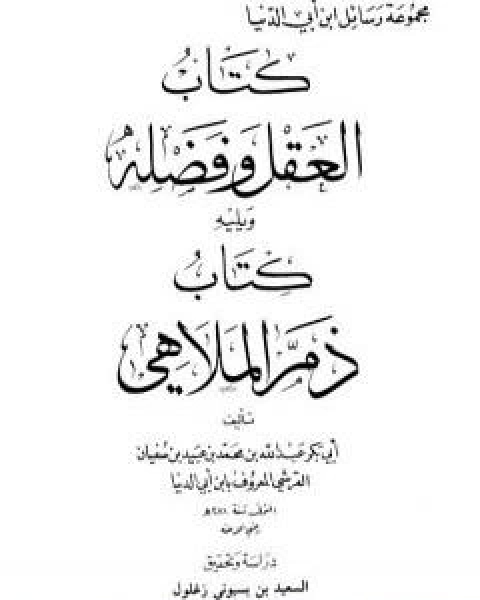 مجموعة رسائل ابن أبي الدنيا
كتاب
العقل وفضله
ويليه
كتاب
ذم الملاهي
تأليف
أبي بكر عبد الله بن محمد بن عبيد بن سفيان
القرشي المعروف بابن أبي الدنيا
المتوفى سنة ٢٨١ هـ
رضي الله عنه
دراسة وتحقيق
السعيد بن بسيوني زغلول